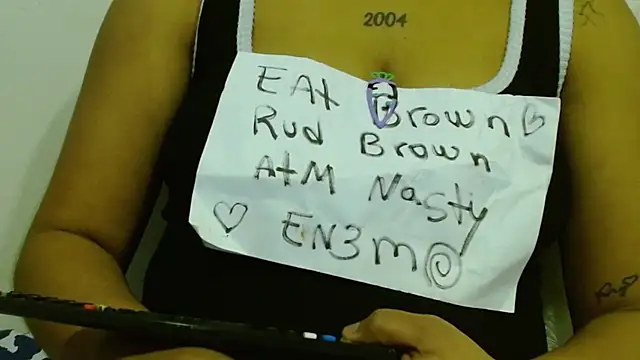 2004
EAt Brown
Rud Brown
AtM Nasty
EN3M@